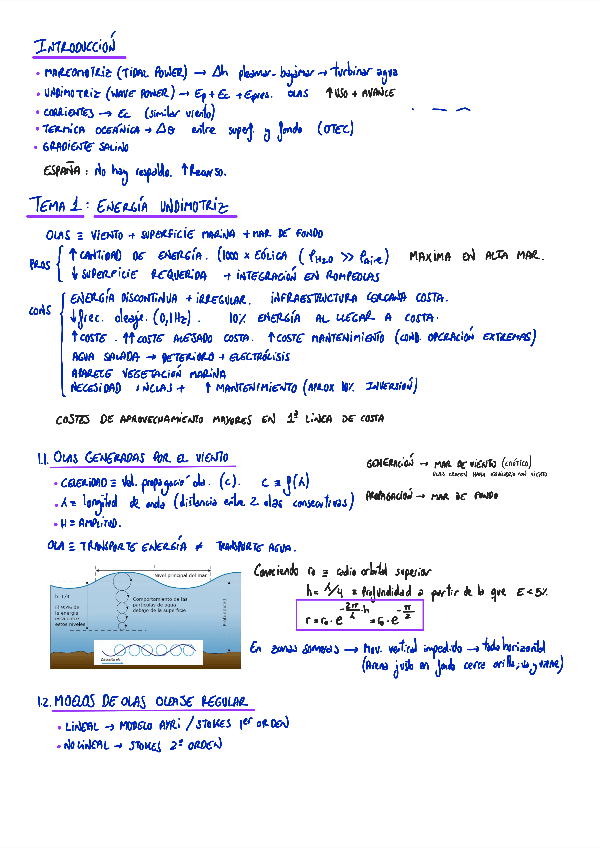 INTRODUCCIÓN
• MAREOMOTRIZ (TIDAL POWER) → Δh pleamar-bajamar → turbinar agua
• UNDIMOTRIZ (WAVE POWER) → Ep + Ec + Epres. OLAS ↑USO + AVANCE
• CORRIENTES → Ec (similar viento)
• TERMICA OCEÁNICA → Δθ entre superf. y fondo (OTEC)
• GRADIENTE SALINO
ESPAÑA: No hay respaldo. ↑Recurso.
TEMA 1: ENERGÍA UNDIMOTRIZ
OLAS ≡ VIENTO + SUPERFICIE MARINA + MAR DE FONDO
PROS
↑ CANTIDAD DE ENERGÍA. (1000 x EÓLICA (ρH2O >> ρAire) MAXIMA EN ALTA MAR.
↓ SUPERFICIE REQUERIDA + INTEGRACIÓN EN ROMPEOLAS
CONS
ENERGÍA DISCONTINUA + IRREGULAR. INFRAESTRUCTURA CERCANA COSTA.
↓frec. oleaje. (0,1Hz). 10% ENERGÍA AL LLEGAR A COSTA.
↑COSTE. ↑↑COSTE ALEJADO COSTA. ↑COSTE MANTENIMIENTO (COND. OPERACIÓN EXTREMAS)
AGUA SALADA → DETERIORO + ELECTRÓLISIS
APARECE VEGETACIÓN MARINA
NECESIDAD ANCLAS + ↑ MANTENIMIENTO (APROX 10% INVERSIÓN)
COSTES DE APROVECHAMIENTO MAYORES EN 1ª LÍNEA DE COSTA
1.1. OLAS GENERADAS POR EL VIENTO
GENERACIÓN → MAR DE VIENTO (CAÓTICO)
OLAS CRECEN HASTA EQUILIBRIO CON VIENTO
• CELERIDAD ≡ Vel. propagación ola. (c). C ≡ f(λ)
PROPAGACIÓN → MAR DE FONDO
• λ ≡ longitud de onda (distancia entre 2 olas consecutivas)
• H ≡ AMPLITUD.
OLA ≡ TRANSPORTE ENERGÍA ≠ TRANSPORTE AGUA.
Nivel principal del mar
Comportamiento de las partículas de agua debajo de la superficie
Profundidad
Conociendo r0 ≡ radio orbital superior
h = λ/4 ≡ Profundidad a partir de la que E<5%
r = r0 · e^(-2π/λ · h) = r0 · e^(-π/2)
En zonas someras → Mov. vertical impedido → todo horizontal
(Arena justo en fondo cerca orilla, va y viene)
1.2. MODELOS DE OLAS OLEAJE REGULAR
• LINEAL → MODELO AYRI / STOKES 1er ORDEN
• NO LINEAL → STOKES 2º ORDEN